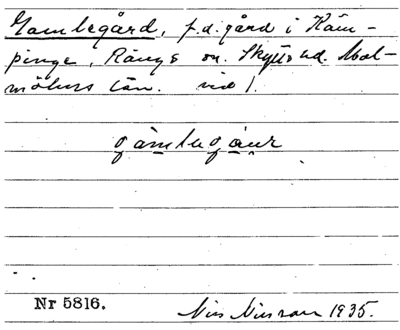 Gamlegård, f.d. gård i Käm-
pinge, Rängs sn. Skytts hd. Mal-
möhus län.
Nr 5816.
Nils Nilsson 1935.